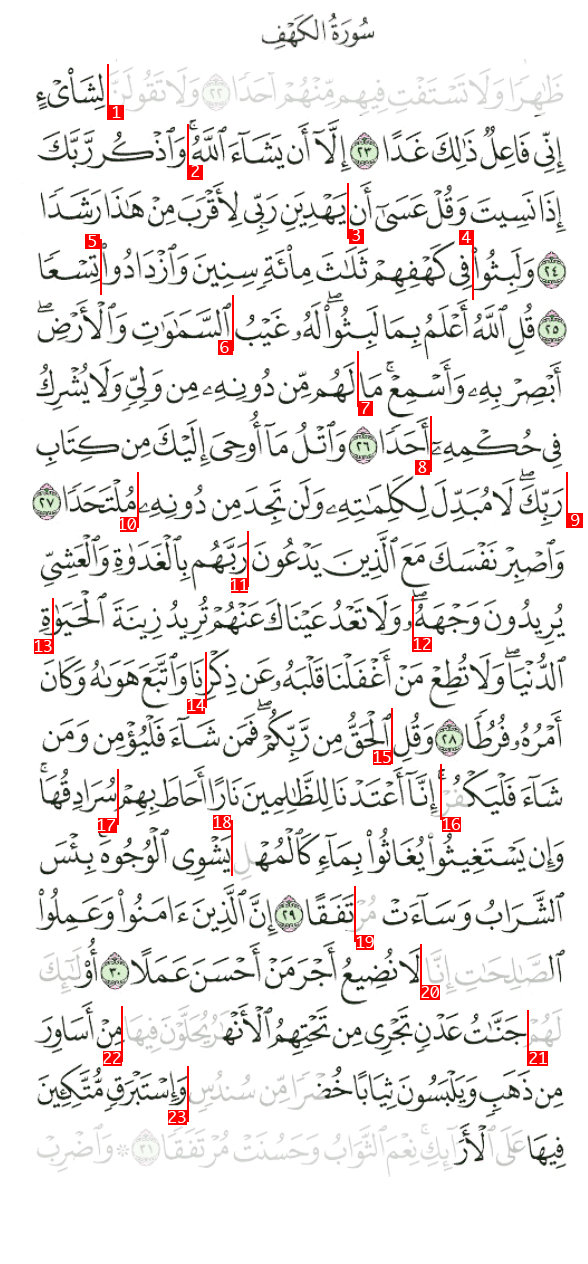 سُورَةُ الكَهْفِ
ظَٰهِرًا وَلَا تَسْتَفْتِ فِيهِم مِّنْهُمْ أَحَدًا ٢٢ وَلَا تَقُولَنَّ لِشَاْىْءٍ
إِنِّى فَاعِلٌ ذَٰلِكَ غَدًا ٢٣ إِلَّآ أَن يَشَآءَ ٱللَّهُ ۚ وَٱذْكُر رَّبَّكَ
إِذَا نَسِيتَ وَقُلْ عَسَىٰٓ أَن يَهْدِيَنِ رَبِّى لِأَقْرَبَ مِنْ هَٰذَا رَشَدًا
٢٤ وَلَبِثُوا۟ فِى كَهْفِهِمْ ثَلَٰثَ مِا۟ئَةٍ سِنِينَ وَٱزْدَادُوا۟ تِسْعًا
٢٥ قُلِ ٱللَّهُ أَعْلَمُ بِمَا لَبِثُوا۟ ۖ لَهُۥ غَيْبُ ٱلسَّمَٰوَٰتِ وَٱلْأَرْضِ ۖ
أَبْصِرْ بِهِۦ وَأَسْمِعْ ۚ مَا لَهُم مِّن دُونِهِۦ مِن وَلِىٍّ وَلَا يُشْرِكُ
فِى حُكْمِهِۦٓ أَحَدًا ٢٦ وَٱتْلُ مَآ أُوحِىَ إِلَيْكَ مِن كِتَابِ
رَبِّكَ ۖ لَا مُبَدِّلَ لِكَلِمَٰتِهِۦ وَلَن تَجِدَ مِن دُونِهِۦ مُلْتَحَدًا ٢٧
وَٱصْبِرْ نَفْسَكَ مَعَ ٱلَّذِينَ يَدْعُونَ رَبَّهُم بِٱلْغَدَوٰةِ وَٱلْعَشِىِّ
يُرِيدُونَ وَجْهَهُۥ ۖ وَلَا تَعْدُ عَيْنَاكَ عَنْهُمْ تُرِيدُ زِينَةَ ٱلْحَيَوٰةِ
ٱلدُّنْيَا ۖ وَلَا تُطِعْ مَنْ أَغْفَلْنَا قَلْبَهُۥ عَن ذِكْرِنَا وَٱتَّبَعَ هَوَىٰهُ وَكَانَ
أَمْرُهُۥ فُرُطًا ٢٨ وَقُلِ ٱلْحَقُّ مِن رَّبِّكُمْ ۖ فَمَن شَآءَ فَلْيُؤْمِن وَمَن
شَآءَ فَلْيَكْفُرْ ۚ إِنَّآ أَعْتَدْنَا لِلظَّٰلِمِينَ نَارًا أَحَاطَ بِهِمْ سُرَادِقُهَا ۚ
وَإِن يَسْتَغِيثُوا۟ يُغَاثُوا۟ بِمَآءٍ كَٱلْمُهْلِ يَشْوِى ٱلْوُجُوهَ ۚ بِئْسَ
ٱلشَّرَابُ وَسَآءَتْ مُرْتَفَقًا ٢٩ إِنَّ ٱلَّذِينَ ءَامَنُوا۟ وَعَمِلُوا۟
ٱلصَّٰلِحَٰتِ إِنَّا لَا نُضِيعُ أَجْرَ مَنْ أَحْسَنَ عَمَلًا ٣٠ أُو۟لَٰٓئِكَ
لَهُمْ جَنَّٰتُ عَدْنٍ تَجْرِى مِن تَحْتِهِمُ ٱلْأَنْهَٰرُ يُحَلَّوْنَ فِيهَا مِنْ أَسَاوِرَ
مِن ذَهَبٍ وَيَلْبَسُونَ ثِيَابًا خُضْرًا مِّن سُندُسٍ وَإِسْتَبْرَقٍ مُّتَّكِـِٔينَ
فِيهَا عَلَى ٱلْأَرَآئِكِ ۚ نِعْمَ ٱلثَّوَابُ وَحَسُنَتْ مُرْتَفَقًا ٣١ ۞ وَٱضْرِبْ
1
2
3
4
5
6
7
8
9
10
11
12
13
14
15
16
17
18
19
20
21
22
23